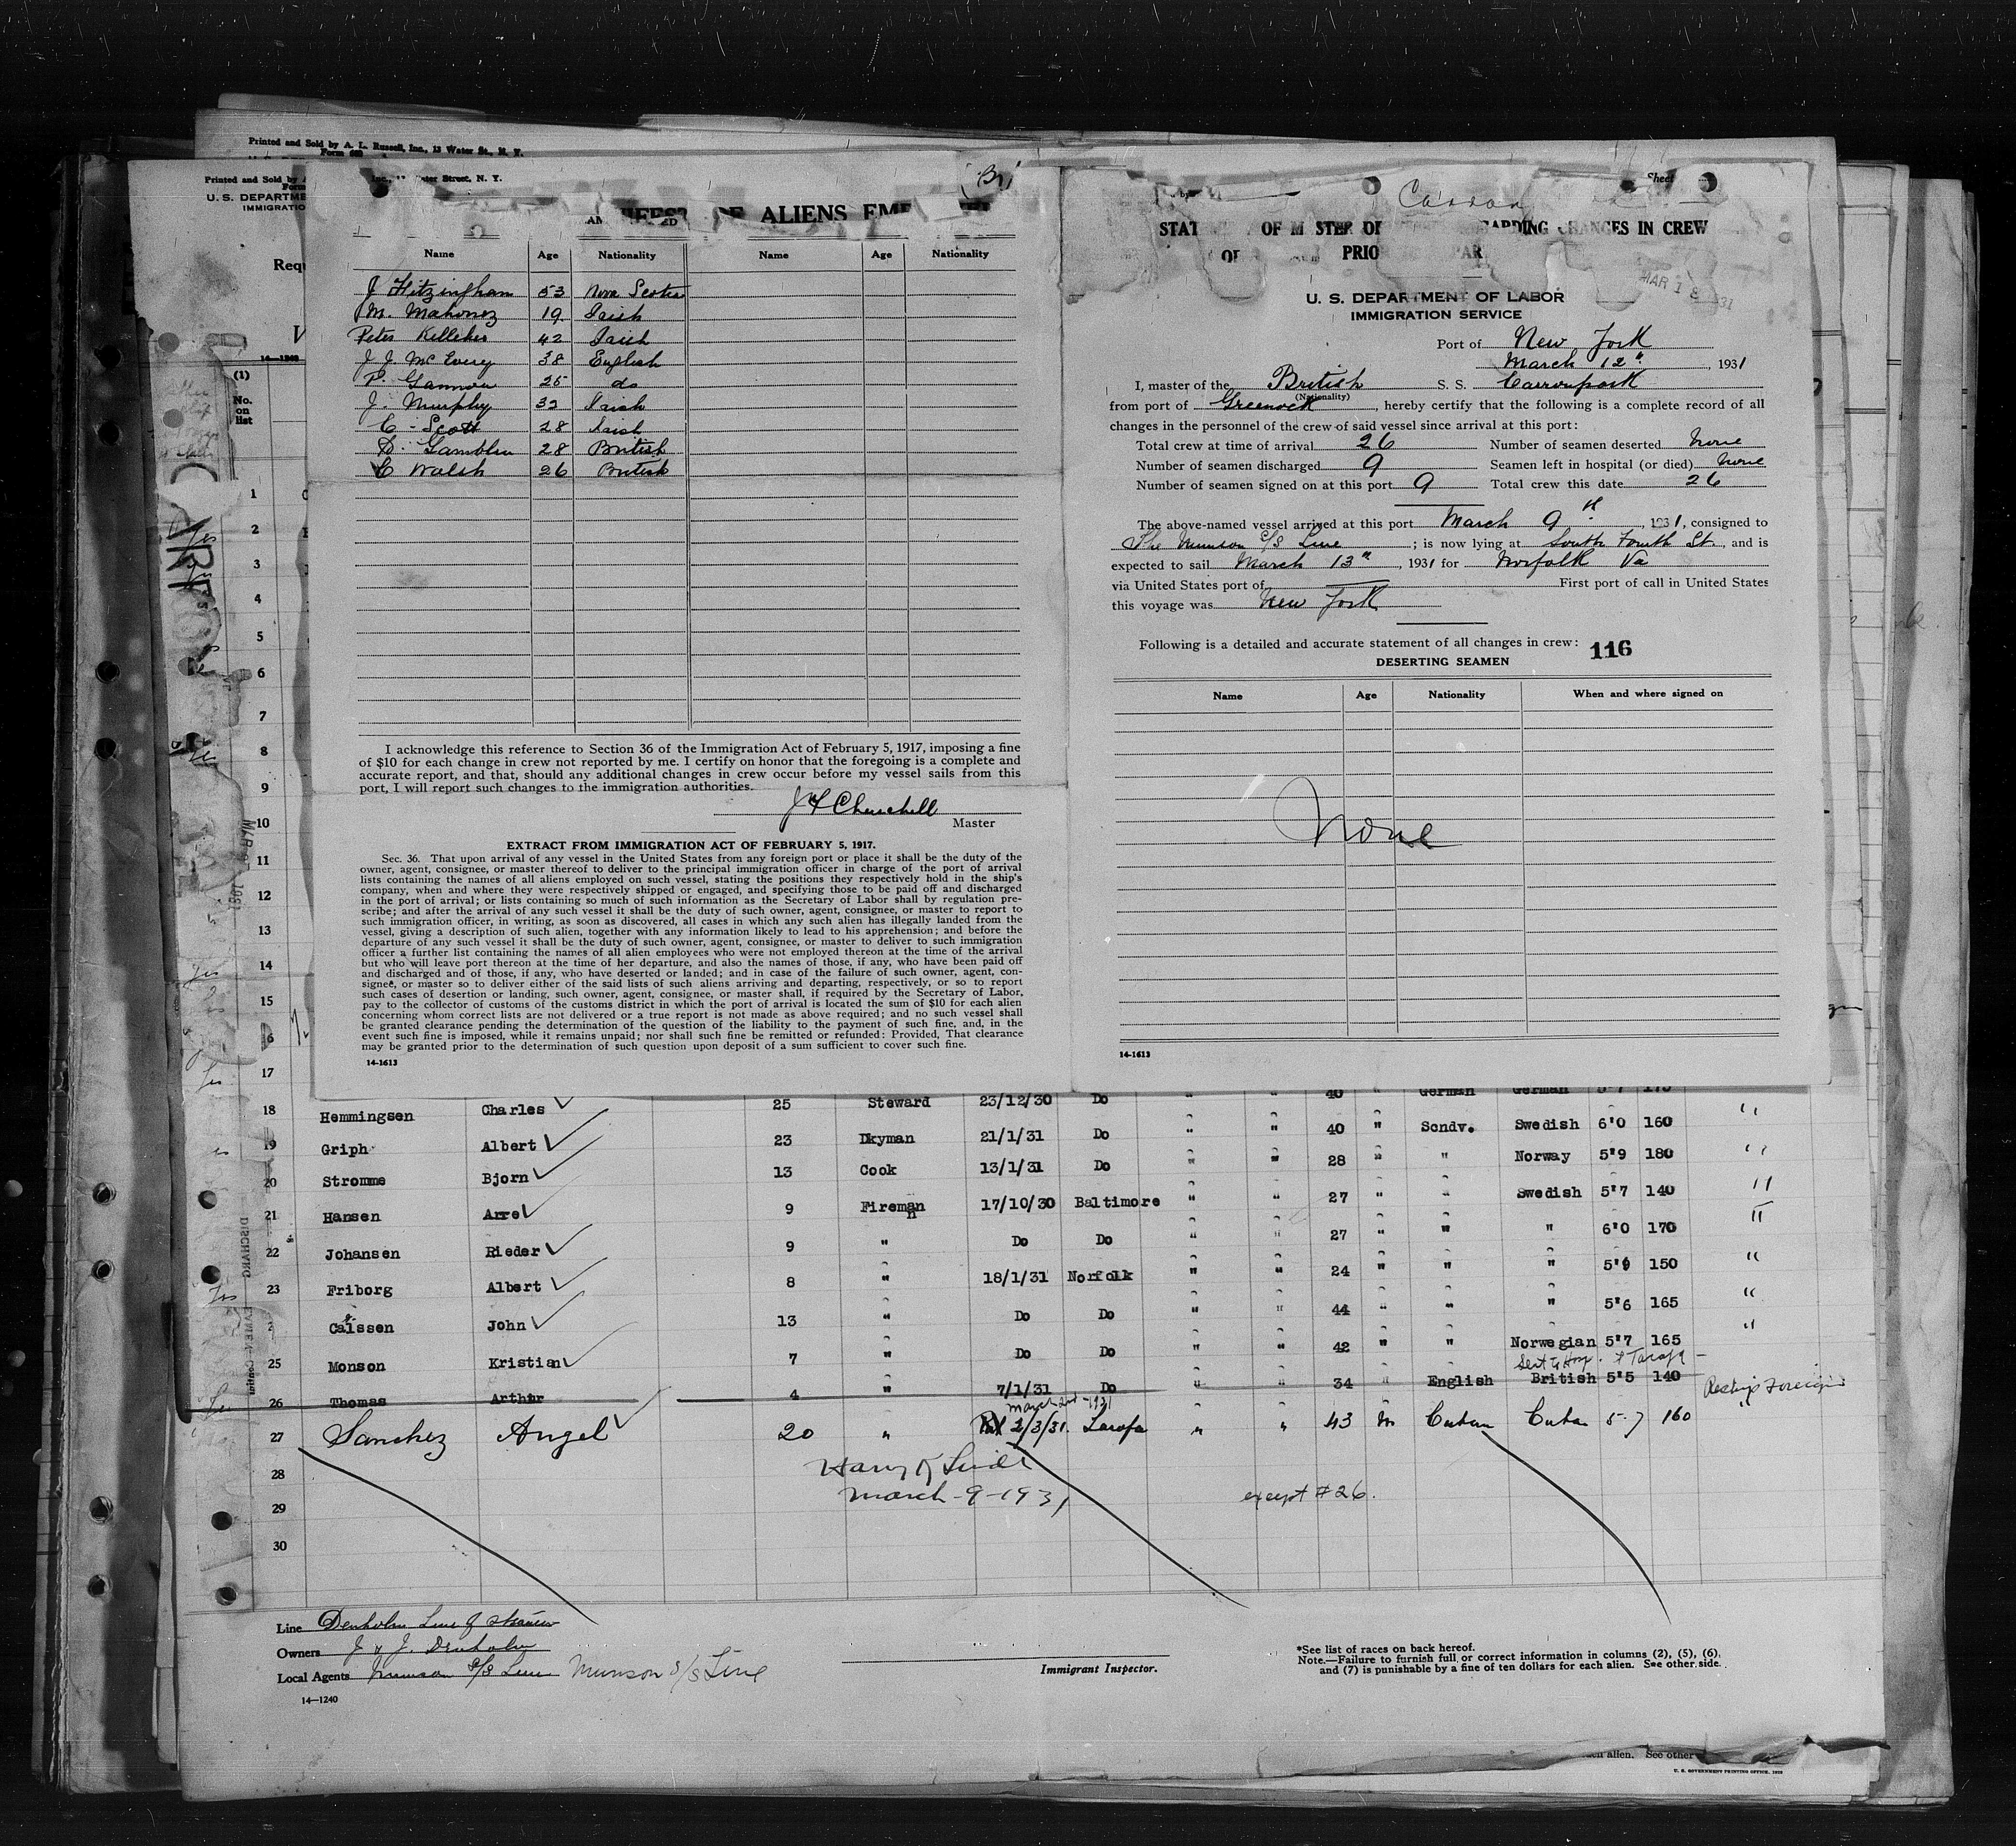 Printed and Sold by A. L. Russell, Inc., 13 Water St., N. Y.
Form 680
Printed and Sold by
Form
U. S. DEPARTME
IMMIGRATIO
Requ
14-1240
(1)
No.
on
list
Water Street, N. Y.
ALIENS
Name Age Nationality Name Age Nationality
J Fitzingham 53 Nova Scotia
M. Mahoney 19 Irish
Peter Kelleher 42 Irish
J J. McEvery 38 English
P. Gannon 25 do
J. Murphy 32 Irish
C - Scott 28 Irish
D. Gamblin 28 British
C Walsh 26 British
I acknowledge this reference to Section 36 of the Immigration Act of February 5, 1917, imposing a fine
of $10 for each change in crew not reported by me. I certify on honor that the foregoing is a complete and
accurate report, and that, should any additional changes in crew occur before my vessel sails from this
port, I will report such changes to the immigration authorities.
J F Churchell
Master
EXTRACT FROM IMMIGRATION ACT OF FEBRUARY 5, 1917.
Sec. 36. That upon arrival of any vessel in the United States from any foreign port or place it shall be the duty of the
owner, agent, consignee, or master thereof to deliver to the principal immigration officer in charge of the port of arrival
lists containing the names of all aliens employed on such vessel, stating the positions they respectively hold in the ship's
company, when and where they were respectively shipped or engaged, and specifying those to be paid off and discharged
in the port of arrival; or lists containing so much of such information as the Secretary of Labor shall by regulation pre-
scribe; and after the arrival of any such vessel it shall be the duty of such owner, agent, consignee, or master to report to
such immigration officer, in writing, as soon as discovered, all cases in which any such alien has illegally landed from the
vessel, giving a description of such alien, together with any information likely to lead to his apprehension; and before the
departure of any such vessel it shall be the duty of such owner, agent, consignee, or master to deliver to such immigration
officer a further list containing the names of all alien employees who were not employed thereon at the time of the arrival
but who will leave port thereon at the time of her departure, and also the names of those, if any, who have been paid off
and discharged and of those, if any, who have deserted or landed; and in case of the failure of such owner, agent, con-
signee, or master so to deliver either of the said lists of such aliens arriving and departing, respectively, or so to report
such cases of desertion or landing, such owner, agent, consignee, or master shall, if required by the Secretary of Labor,
pay to the collector of customs of the customs district in which the port of arrival is located the sum of $10 for each alien
concerning whom correct lists are not delivered or a true report is not made as above required; and no such vessel shall
be granted clearance pending the determination of the question of the liability to the payment of such fine, and, in the
event such fine is imposed, while it remains unpaid; nor shall such fine be remitted or refunded: Provided, That clearance
may be granted prior to the determination of such question upon deposit of a sum sufficient to cover such fine.
14-1613
Sheet
STAT OF M STER OF ARDING CHANGES IN CREW
OF PRIO PAR
MAR 1 1931
U. S. DEPARTMENT OF LABOR
IMMIGRATION SERVICE
Port of New York
March 12th, 1931
I, master of the British S. S. Carronpark
(Nationality)
from port of Greenock, hereby certify that the following is a complete record of all
changes in the personnel of the crew of said vessel since arrival at this port:
Total crew at time of arrival 26 Number of seamen deserted None
Number of seamen discharged 9 Seamen left in hospital (or died) None
Number of seamen signed on at this port 9 Total crew this date 26
The above-named vessel arrived at this port March 9th, 1931, consigned to
The Munson S/S Line; is now lying at South Fourth St, and is
expected to sail March 13th, 1931 for Norfolk Va
via United States port of First port of call in United States
this voyage was New York
Following is a detailed and accurate statement of all changes in crew: 116
DESERTING SEAMEN
Name Age Nationality When and where signed on
None
14-1613
1
2
3
4
5
6
7
8
9
10
11
12
13
14
15
16
17
40 " German German 5'7 175
18 Hemmingsen Charles 25 Steward 23/12/30 Do " " 40 " Scndv. Swedish 6'0 160 "
19 Griph Albert 23 Dkyman 21/1/31 Do " " 28 " " Norway 5'9 180 "
20 Stromme Bjorn 13 Cook 13/1/31 Do " " 27 " " Swedish 5'7 140 "
21 Hansen Arre 9 Fireman 17/10/30 Baltimore " " 27 " " " 6'0 170 "
22 Johansen Rieder 9 " Do Do " " 24 " " " 5'9 150 "
23 Friborg Albert 8 " 18/1/31 Norfolk " " 44 " " " 5'6 165 "
2 Caissen John 13 " Do Do " " 42 " " Norwegian 5'7 165 "
25 Monson Kristian 7 " Do Do " " 34 " English British 5'5 140
Sent to Hosp. at Tarafa
26 Thomas Arthur 4 " 7/1/31 Do
March 2nd-1931
Reship Foreign
27 Sanchez Angel 20 " 2/3/31. Tarafa " " 43 m Cuban Cuba 5-7 160
28
29
30
March-9-1931
except #26.
Line Denholm Line of Steamers
Owners J & J. Denholm
Local Agents Munson S/S Line Munson S/S Line
14-1240
Immigrant Inspector.
*See list of races on back hereof.
Note.—Failure to furnish full or correct information in columns (2), (5), (6),
and (7) is punishable by a fine of ten dollars for each alien. See other side.
alien. See other
U. S. GOVERNMENT PRINTING OFFICE